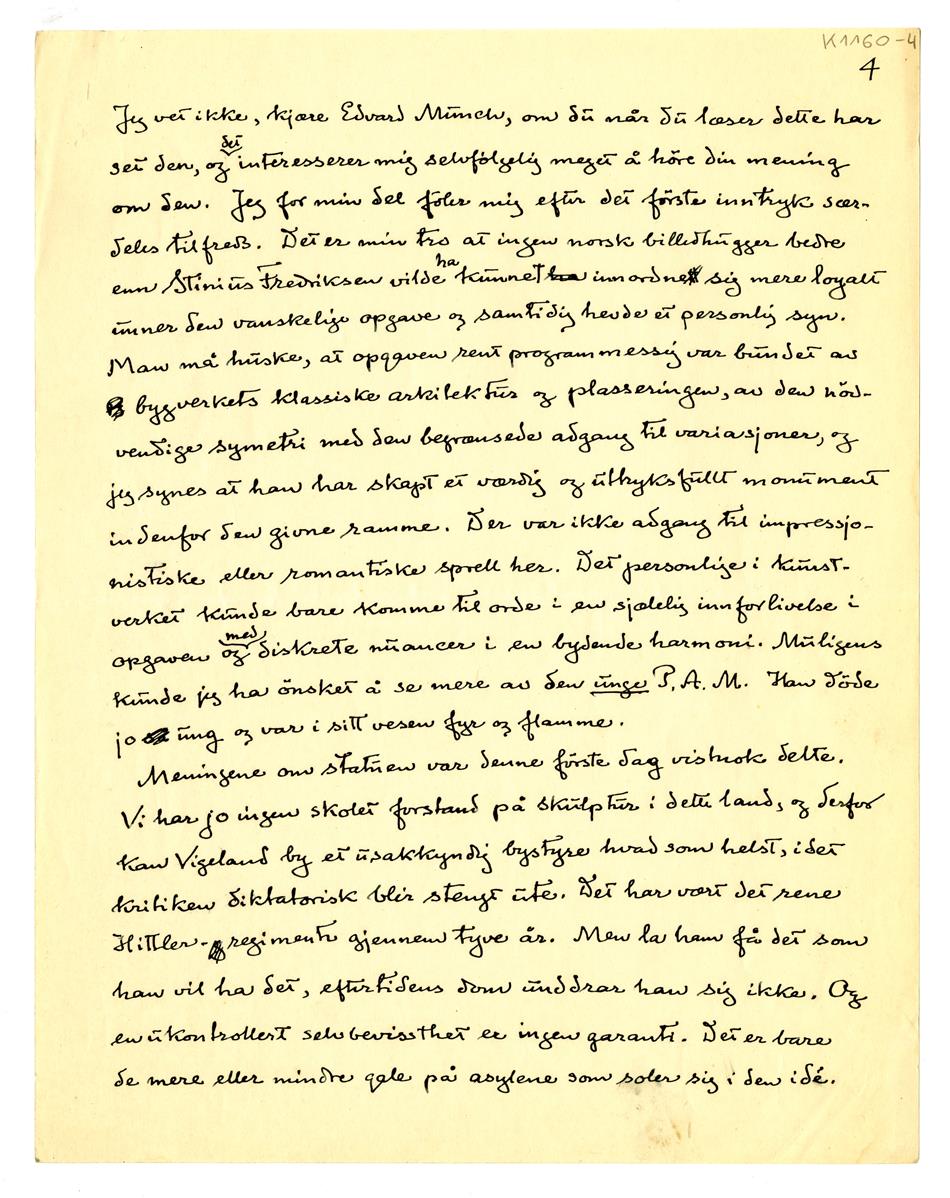 K1160-4
4
Jeg vet ikke, kjære Edvard Munch, om du når du læser dette har
set den, og det interesserer mig selvfölgelig meget å höre din mening
om den. Jeg for min del föler mig efter det förste inntryk sær-
deles tilfreds. Det er min tro at ingen norsk billedhugger bedre
enn Stinius Fredriksen vilde ha kunnet innordne sig mere loyalt
unner den vanskelige opgave og samtidig hevde et personlig syn.
Man må huske, at opgaven rent programmessig var bundet av
bygverkets klassiske arkitektur og plasseringen, av den nöd-
vendige symetri med den begrænsede adgang til variasjoner, og
jeg synes at han har skapt et værdig og uttryksfullt monument
indenfor den givne ramme. Der var ikke adgang til impressjo-
nistiske eller romantiske sprell her. Det personlige i kunst-
verket kunde bare komme til orde i en sjælelig innforlivelse i
opgaven og med diskrete nuancer i en bydende harmoni. Muligens
kunde jeg ha önsket å se mere av den unge P.A.M. Han döde
jo ung og var i sitt vesen fyr og flamme.
Meningene om statuen var denne förste dag vistnok delte.
Vi har jo ingen skolet forstand på skulptur i dette land, og derfor
kan Vigeland by et usakkyndig bystyre hvad som helst, idet
kritiken diktatorisk blir stengt ute. Det har vært det rene
Hittler-regimente gjennem tyve år. Men la ham få det som
han vil ha det, eftertidens dom unddrar han sig ikke. Og
en ukontrollert selvbevissthet er ingen garanti. Det er bare
de mere eller mindre gale på asylene som soler sig i den idé.